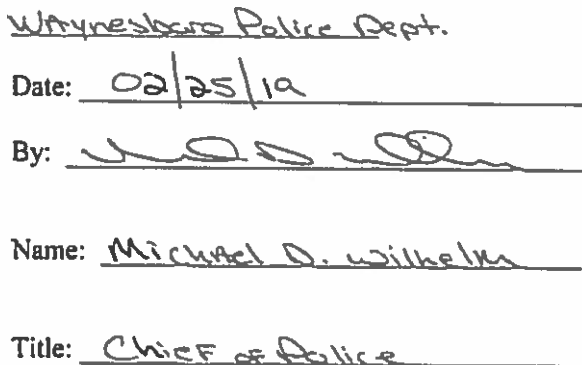 Waynesboro Police Dept.
Date: 02/25/19
By:
Name: Michael D. Wilhelm
Title: Chief of Police